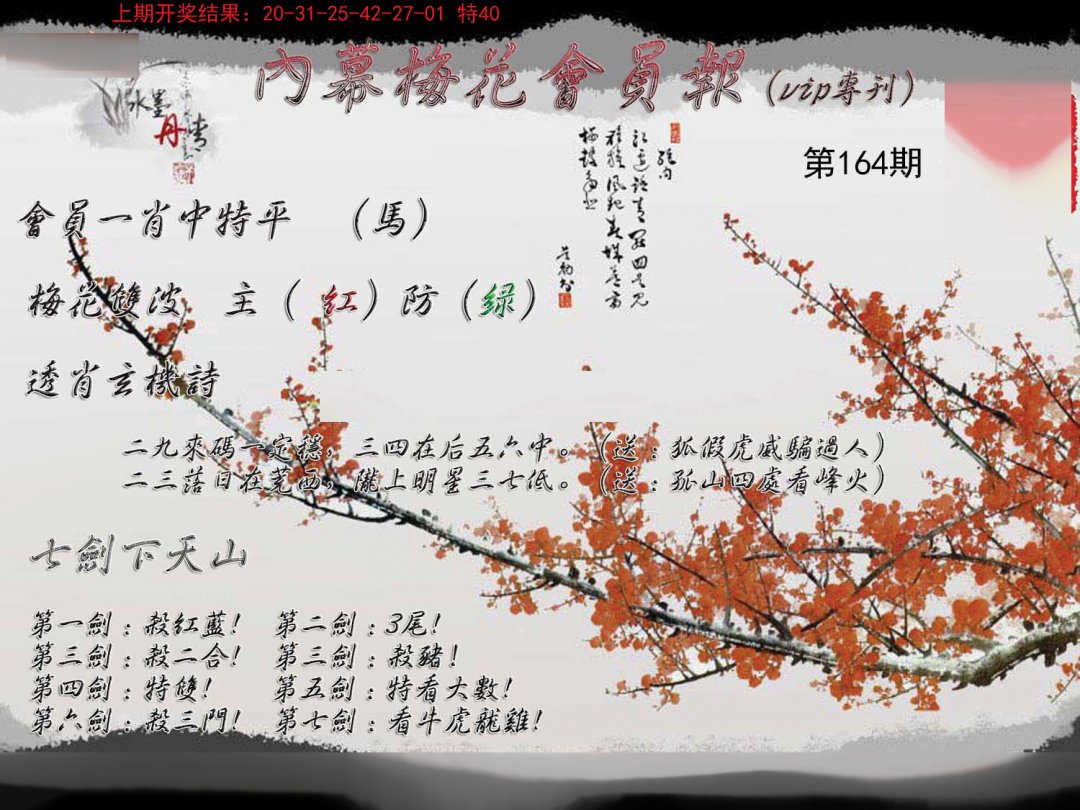 上期开奖结果：20-31-25-42-27-01 特40
內幕梅花會員報（vip專刊）
水墨丹青
第164期
會員一肖中特平 （馬）
梅花雙波 主（ 红）防（绿）
透肖玄機詩
二九來碼一定穩，三四在后五六中。（送：狐假虎威騙過人）
二三落日在荒西，隴上明星三七低。（送：孤山四處看峰火）
七劍下天山
第一劍：殺紅藍！ 第二劍：3尾！
第三劍：殺二合！ 第三劍：殺豬！
第四劍：特雙！ 第五劍：特看大數！
第六劍：殺三門！ 第七劍：看牛虎龍雞！